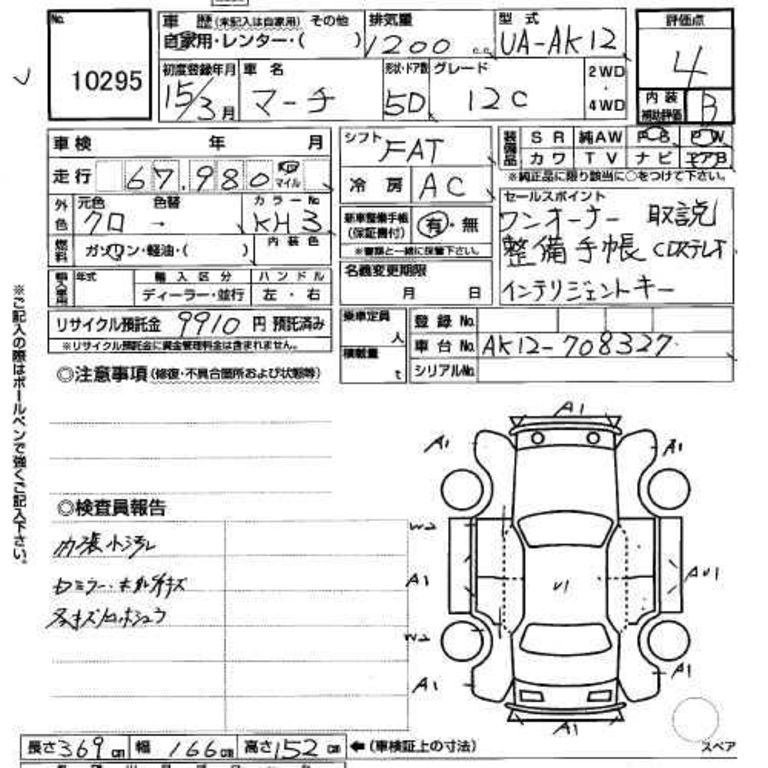 No.
10295
車歴 (未記入は自家用) その他
自家用・レンター・( )
排気量
1200 c.c.
型式
UA-AK12
評価点
4
内装
補助評価
B
初度登録年月
15/3月
車名
マーチ
形状・ドア数
5D
グレード
12C
2WD
・
4WD
車検 年 月
走行 67.980 マイル
外色
元色
クロ
色替
→
カラーNo.
KH3
内装色
燃料
ガソリン・軽油・( )
輸入車用
年式
輸入区分
ディーラー・並行
ハンドル
左・右
リサイクル預託金 9910 円 預託済み
※リサイクル預託金に資金管理料金は含まれません。
シフト
FAT
冷房
AC
新車整備手帳
(保証書付)
有・無
※書類と一緒に保管下さい。
名義変更期限
月 日
乗車定員
人
積載量
t
装備品
SR 純AW PS PW
カワ TV ナビ エアB
※純正品に限り該当に○をつけて下さい。
セールスポイント
ワンオーナー 取説
整備手帳 CDステレオ
インテリジェントキー
登録No.
車台No. AK12-708327
シリアルNo.
※ご記入の際はボールペンで強くご記入下さい。
◎注意事項 (修復・不具合箇所および状態等)
◎検査員報告
内張小汚レ
A1
A1
A1
W2
A1
U1
AU1
W2
A1
A1
A1
スペア
長さ 369 cm 幅 166 cm 高さ 152 cm ←(車検証上の寸法)